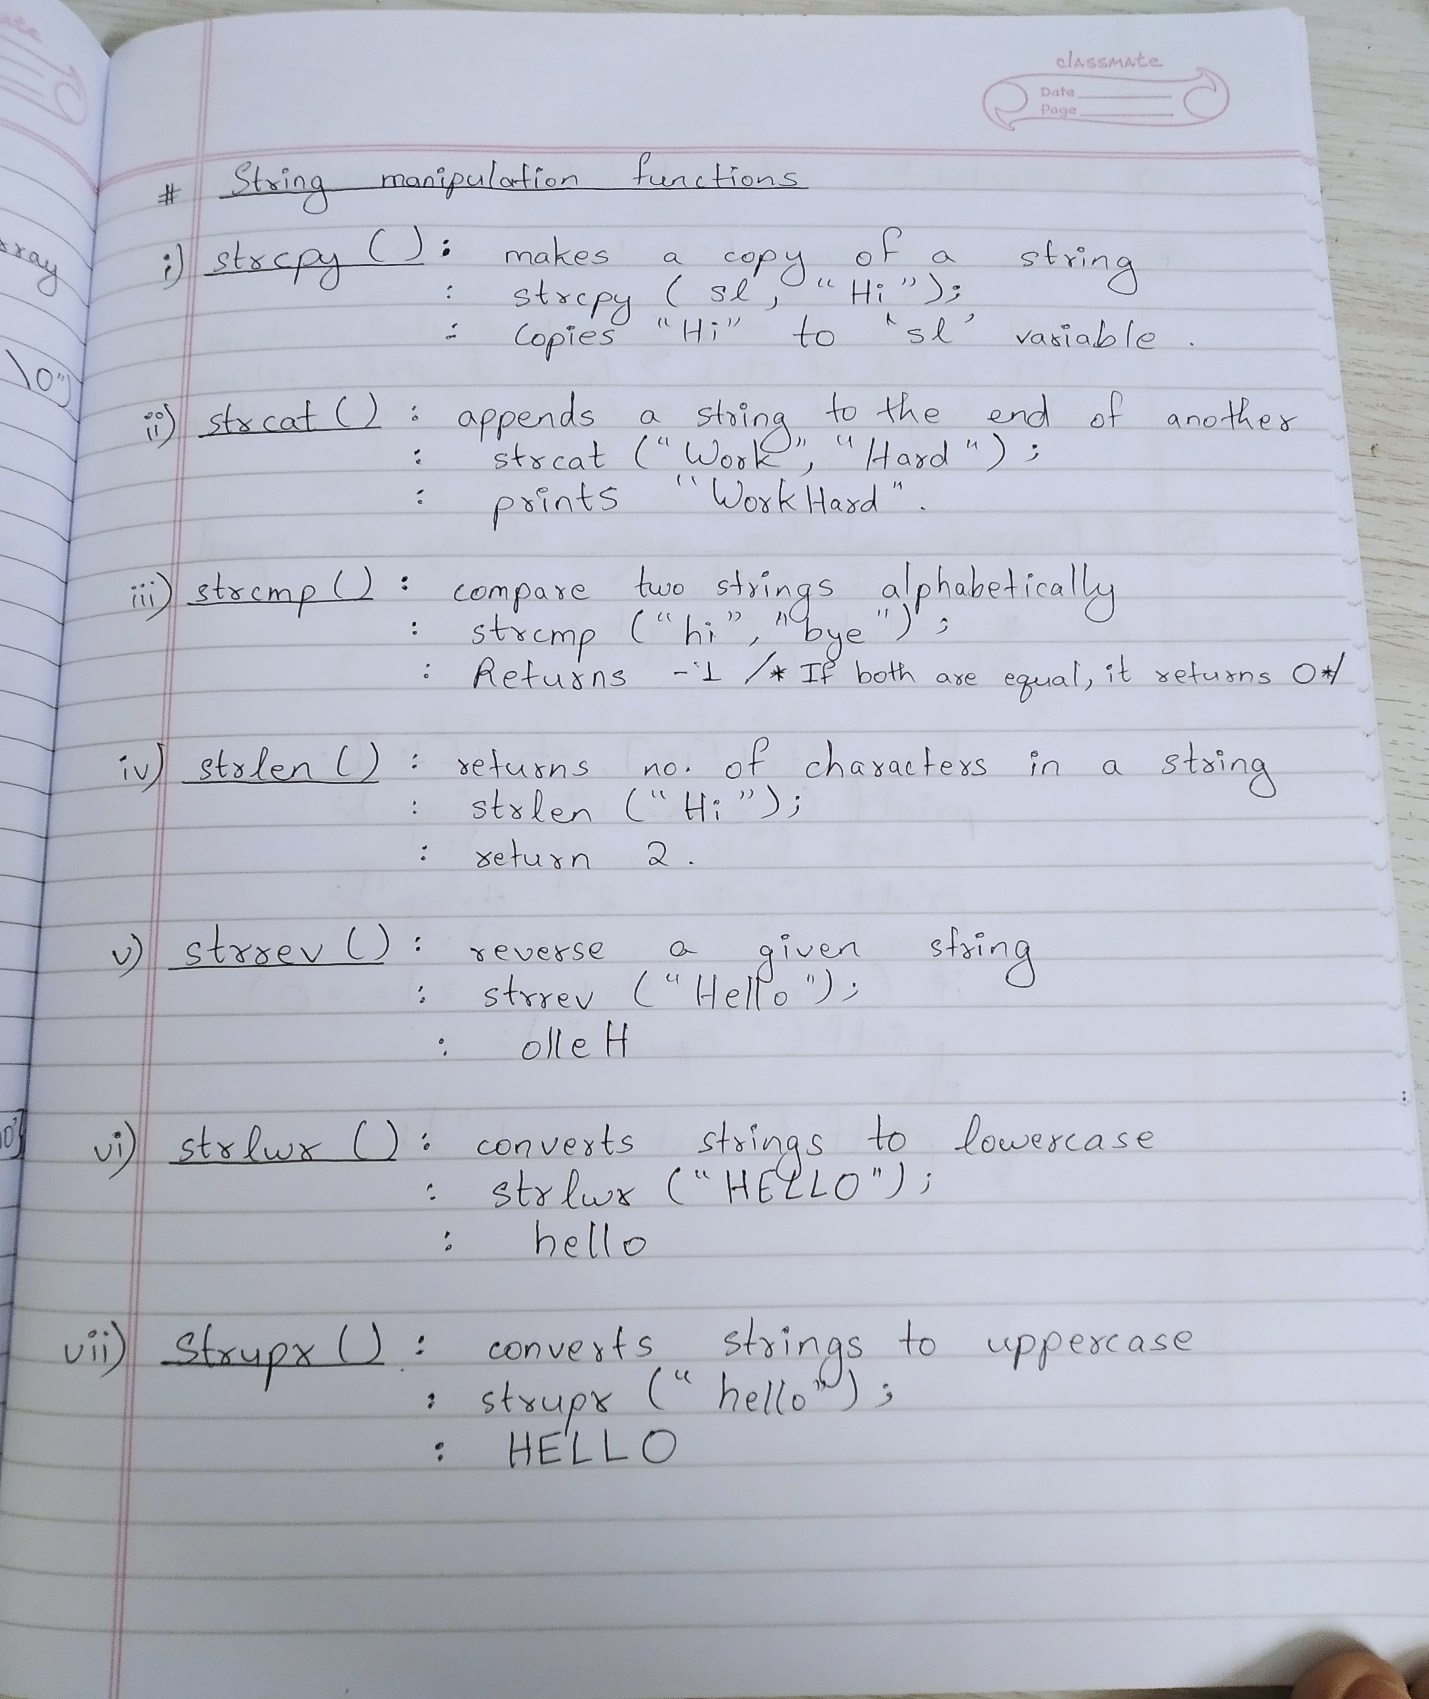 classmate
Date
Page
# String manipulation functions
i) strcpy () : makes a copy of a string
: strcpy ( sl, "Hi");
: Copies "Hi" to 'sl' variable.
ii) strcat () : appends a string to the end of another
: strcat ("Work", "Hard");
: prints "WorkHard".
iii) strcmp () : compare two strings alphabetically
: strcmp ("hi", "bye");
: Returns -1 /* If both are equal, it returns 0*/
iv) strlen () : returns no. of characters in a string
: strlen ("Hi");
: return 2.
v) strrev () : reverse a given string
: strrev ("Hello");
: olleH
vi) strlwr () : converts strings to lowercase
: strlwr ("HELLO");
: hello
vii) strupr () : converts strings to uppercase
: strupr ("hello");
: HELLO